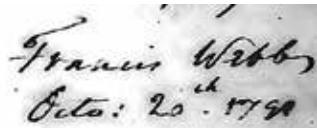 Francis Webb
Octo: 20th. 1790